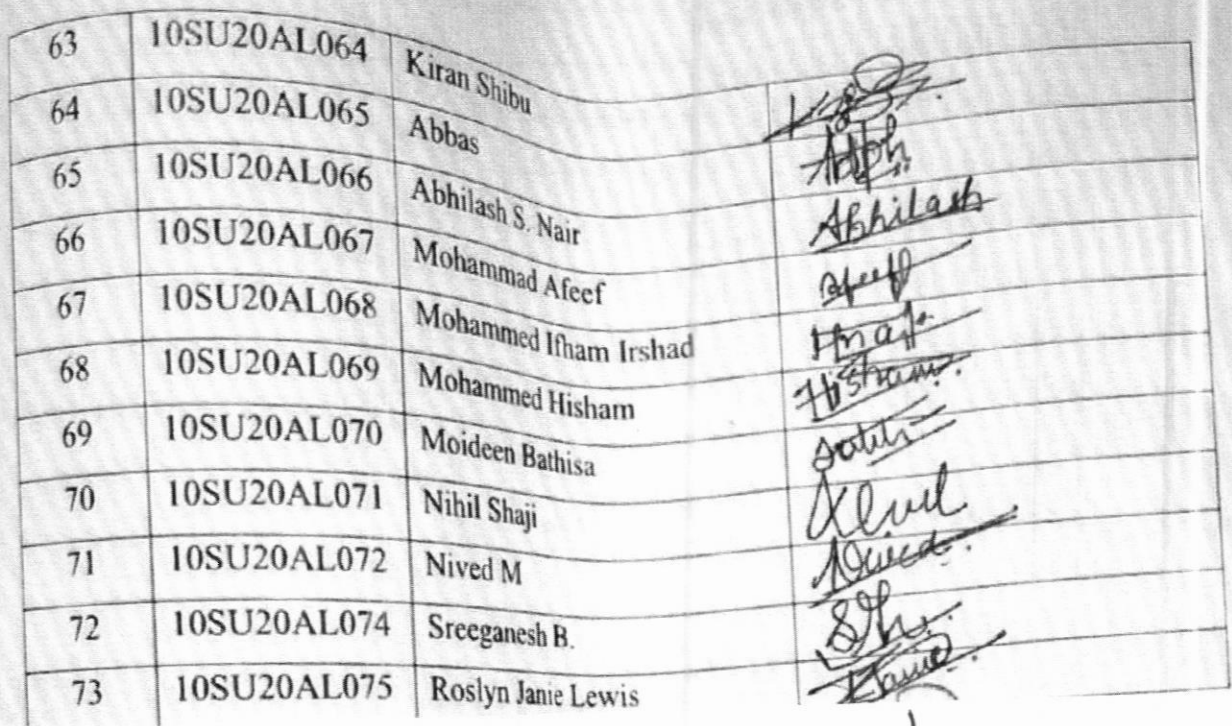 63 10SU20AL064 Kiran Shibu
64 10SU20AL065 Abbas
65 10SU20AL066 Abhilash S. Nair Abhilash
66 10SU20AL067 Mohammad Afeef Afeef
67 10SU20AL068 Mohammed Ifham Irshad
68 10SU20AL069 Mohammed Hisham Hisham
69 10SU20AL070 Moideen Bathisa
70 10SU20AL071 Nihil Shaji
71 10SU20AL072 Nived M Nived
72 10SU20AL074 Sreeganesh B.
73 10SU20AL075 Roslyn Janie Lewis